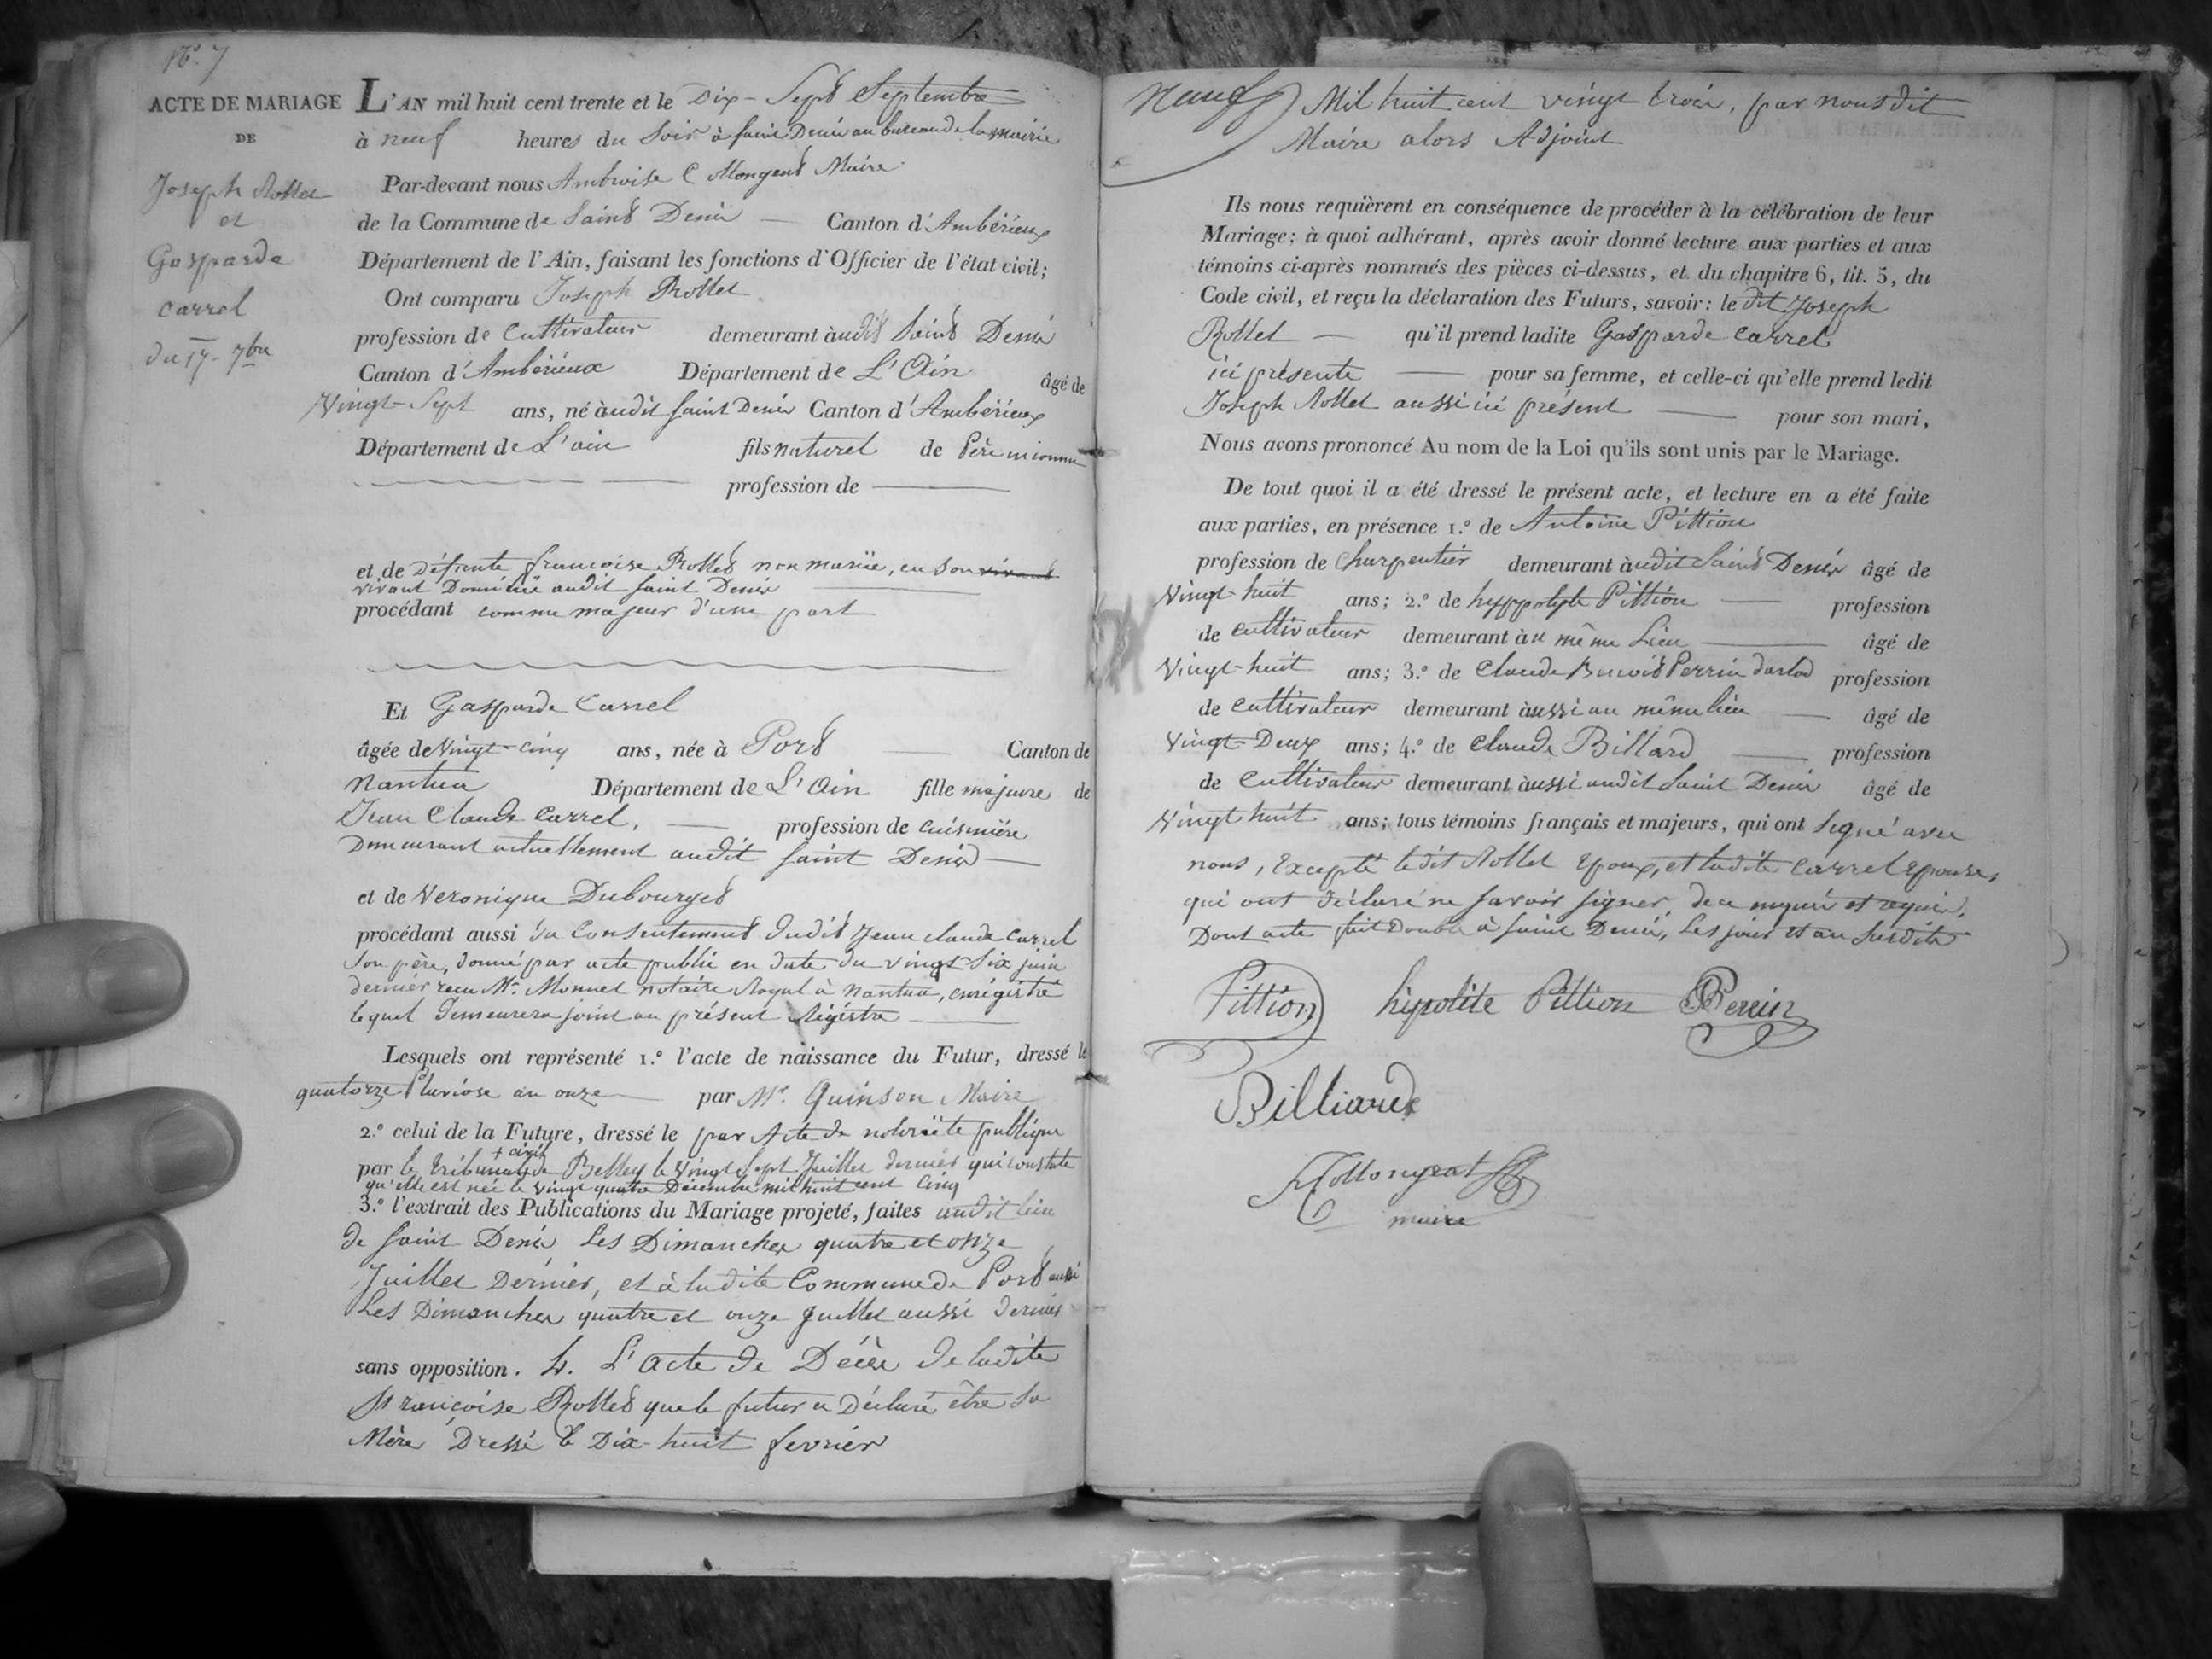 N.º 7
ACTE DE MARIAGE
DE
Joseph Rollet
et
Gasparde
Carrel
du 17 7bre
L'AN mil huit cent trente et le Dix-Sept Septembre
à neuf heures du Soir à Saint Denis au bureau de la mairie
Par-devant nous Ambroise Collongeat Maire
de la Commune de Saint Denis Canton d'Ambérieux
Département de l'Ain, faisant les fonctions d'Officier de l'état civil;
Ont comparu Joseph Rollet
profession de Cultivateur demeurant audit Saint Denis
Canton d'Ambérieux Département de L'Ain âgé de
Vingt-Sept ans, né audit Saint Denis Canton d'Ambérieux
Département de L'ain fils naturel de Père inconnu
profession de
et de Défunte francoise Rollet non mariée, en son vivant
vivant Domiciliée audit Saint Denis
procédant comme majeur d'une part
Et Gasparde Carrel
âgée de Vingt-Cinq ans, née à Port Canton de
Nantua Département de L'Ain fille majeure de
Jean Claude Carrel, profession de Cuisinière
Demeurant actuellement audit Saint Denis
et de Veronique Dubourget
procédant aussi du Consentement dudit Jean claude Carrel
Son père, donné par acte public en date du vingt-Six juin
dernier recu Mr. Monnet notaire Royal à Nantua, enrégistré
lequel Demeurera joint au présent Régistre
Lesquels ont représenté 1.º l'acte de naissance du Futur, dressé le
quatorze Pluviose an onze par Mr. Quinson Maire
2.º celui de la Future, dressé le par Acte de notoriété publique
+ civil
par le tribunal + de Belley le Vingt Sept Juillet dernier qui constate
qu'elle est née le vingt quatre Décembre mil huit cent cinq
3.º l'extrait des Publications du Mariage projeté, faites audit lieu
de Saint Denis Les Dimanches quatre et onze
Juillet Dernier, et à ladite Commune de Port aussi
Les Dimanches quatre et onze juillet aussi dernier
sans opposition. 4. L'acte de Décès de ladite
Françoise Rollet que le futur a Déclaré être sa
Mère Dressé le Dix-huit fevrier
Mil huit cent vingt trois, par nous dit
Maire alors Adjoint
Ils nous requièrent en conséquence de procéder à la célébration de leur
Mariage; à quoi adhérant, après avoir donné lecture aux parties et aux
témoins ci-après nommés des pièces ci-dessus, et du chapitre 6, tit. 5, du
Code civil, et reçu la déclaration des Futurs, savoir: le dit Joseph
Rollet qu'il prend ladite Gasparde Carrel
ici présente pour sa femme, et celle-ci qu'elle prend ledit
Joseph Rollet aussi ici présent pour son mari,
Nous avons prononcé Au nom de la Loi qu'ils sont unis par le Mariage.
De tout quoi il a été dressé le présent acte, et lecture en a été faite
aux parties, en présence 1.º de Antoine Pittion
profession de Charpentier demeurant audit Saint Denis âgé de
Vingt-huit ans; 2.º de hyppolyte Pittion profession
de Cultivateur demeurant au même Lieu âgé de
Vingt-huit ans; 3.º de Claude Benoit Perrin profession
de Cultivateur demeurant aussi au même lieu âgé de
Vingt-Deux ans; 4.º de Claude Billard profession
de Cultivateur demeurant aussi audit Saint Denis âgé de
Vingt huit ans; tous témoins français et majeurs, qui ont Signé avec
nous, Excepté ledit Rollet Epoux, et ladite Carrel Epouse,
qui ont déclaré ne Savoir Signer, de ce enquis et requis,
Dont acte fait double à Saint Denis, Les jour et an Susdits
Pittion hipolite Pittion Perrin
Billiard
Collongeat
maire